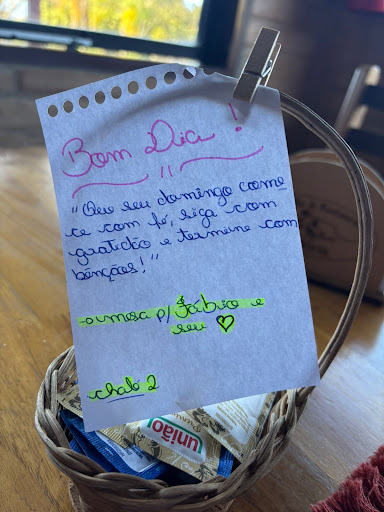 Bom Dia !
"Que seu domingo come
ce com fé, siga com
gratidão e termine com
bênçãos!"
mesa p/ Fábio e
seu ♡
chalé 2
união